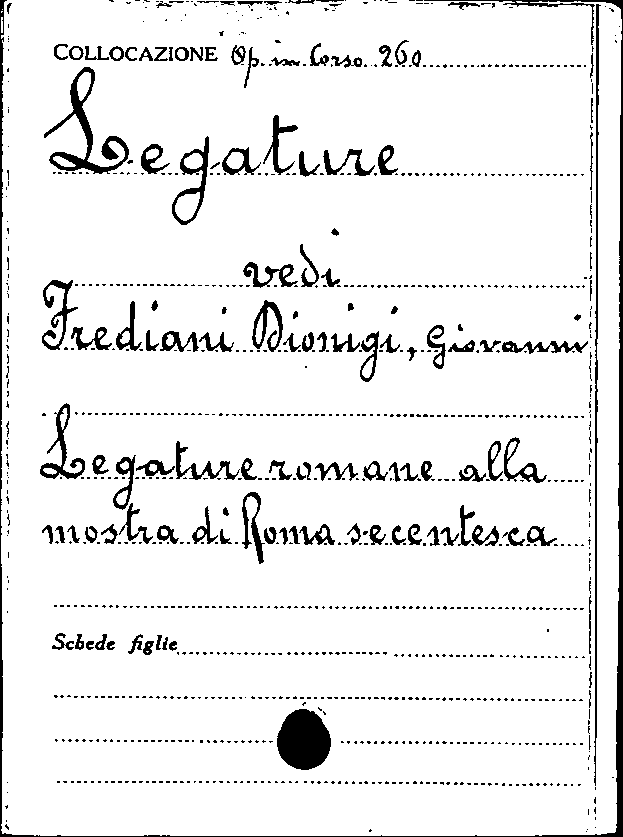 COLLOCAZIONE Op. in Corso 260
Legature
vedi
Frediani Dionigi, Giovanni
Legature romane alla
mostra di Roma secentesca
Schede figlie